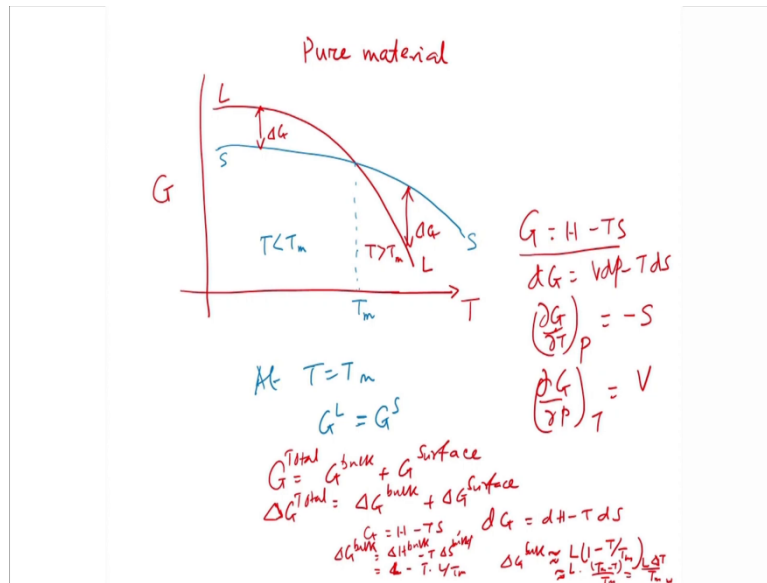 Pure material
L
ΔG
S
G
T<Tm
T>Tm
ΔG
S
L
Tm
T
G = H - TS
dG = Vdp - Tds
(∂G/∂T)P = -S
(∂G/∂P)T = V
At T = Tm
G^L = G^S
G^Total = G^bulk + G^Surface
ΔG^Total = ΔG^bulk + ΔG^Surface
G = H - TS, dG = dH - T dS
ΔG^bulk = ΔH^bulk - T ΔS^bulk
= L - T · L/Tm
ΔG^bulk ≈ L(1 - T/Tm)
≈ L · (Tm-T)/Tm = L ΔT/Tm